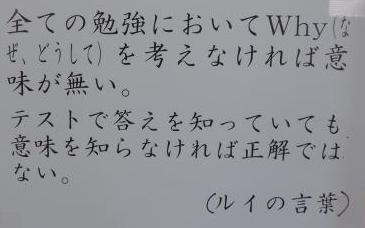 全ての勉強においてWhy(な
ぜ、どうして)を考えなければ意
味が無い。
テストで答えを知っていても
意味を知らなければ正解では
ない。
(ルイの言葉)